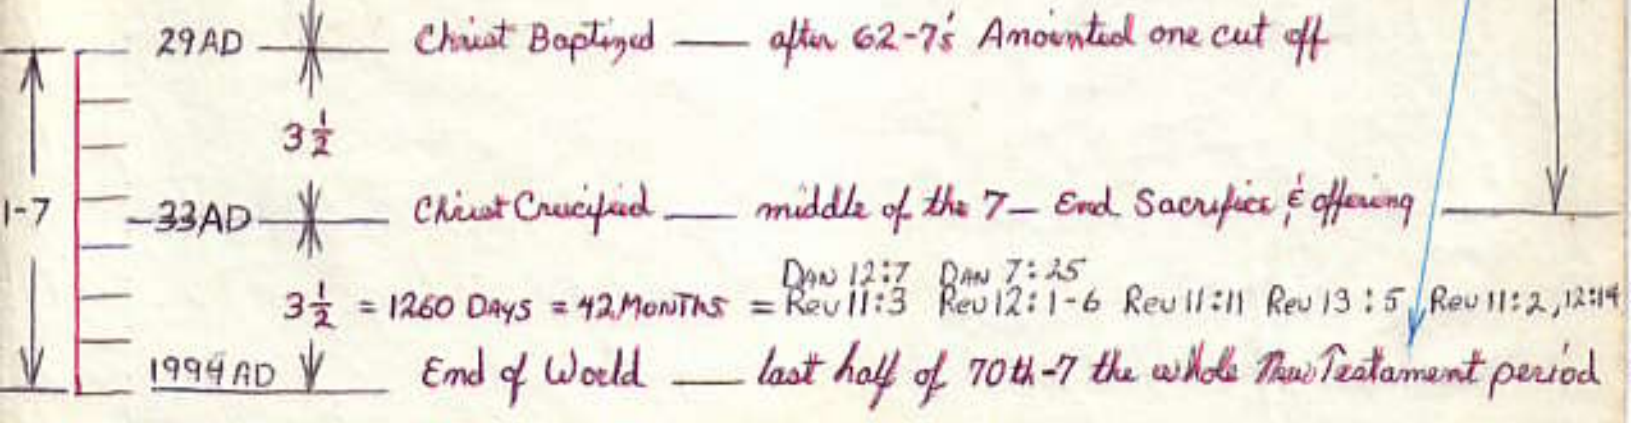 29AD Christ Baptized — after 62-7's Anointed one cut off
3 1/2
1-7
33AD Christ Crucified — middle of the 7 — End Sacrifice & offering
Dan 12:7 Dan 7:25
3 1/2 = 1260 Days = 42 Months = Rev 11:3 Rev 12:1-6 Rev 11:11 Rev 13:5 Rev 11:2, 12:14
1994 AD End of World — last half of 70th-7 the whole New Testament period